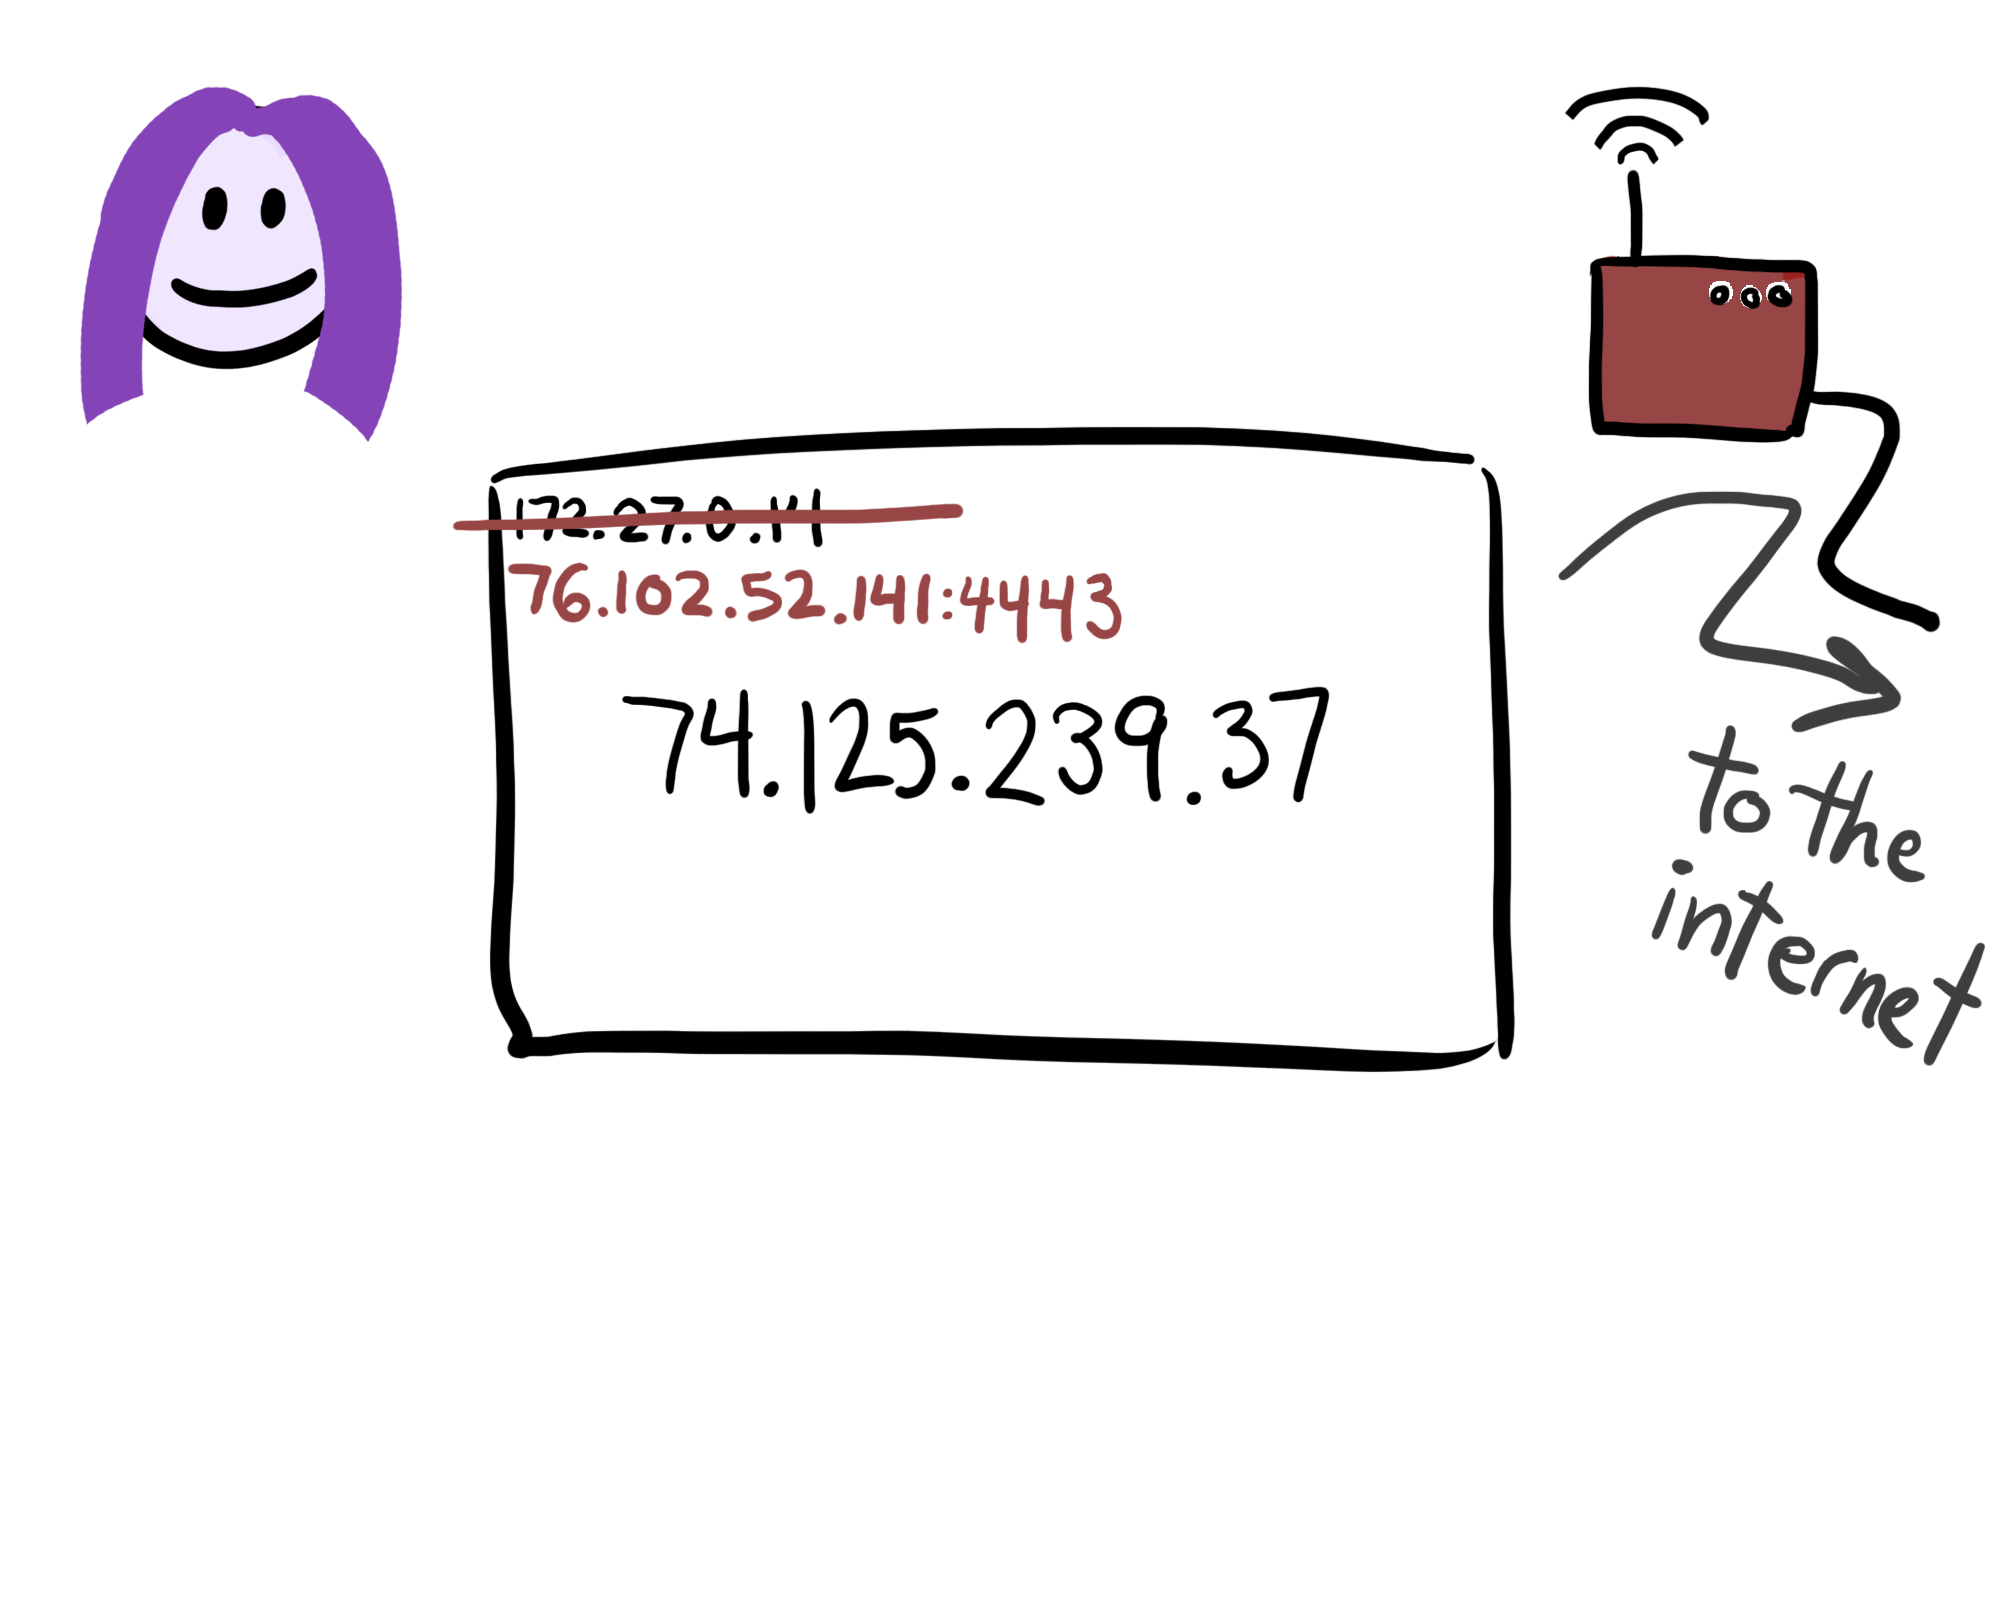 172.27.0.141
76.102.52.141:4443
74.125.239.37
to the
internet